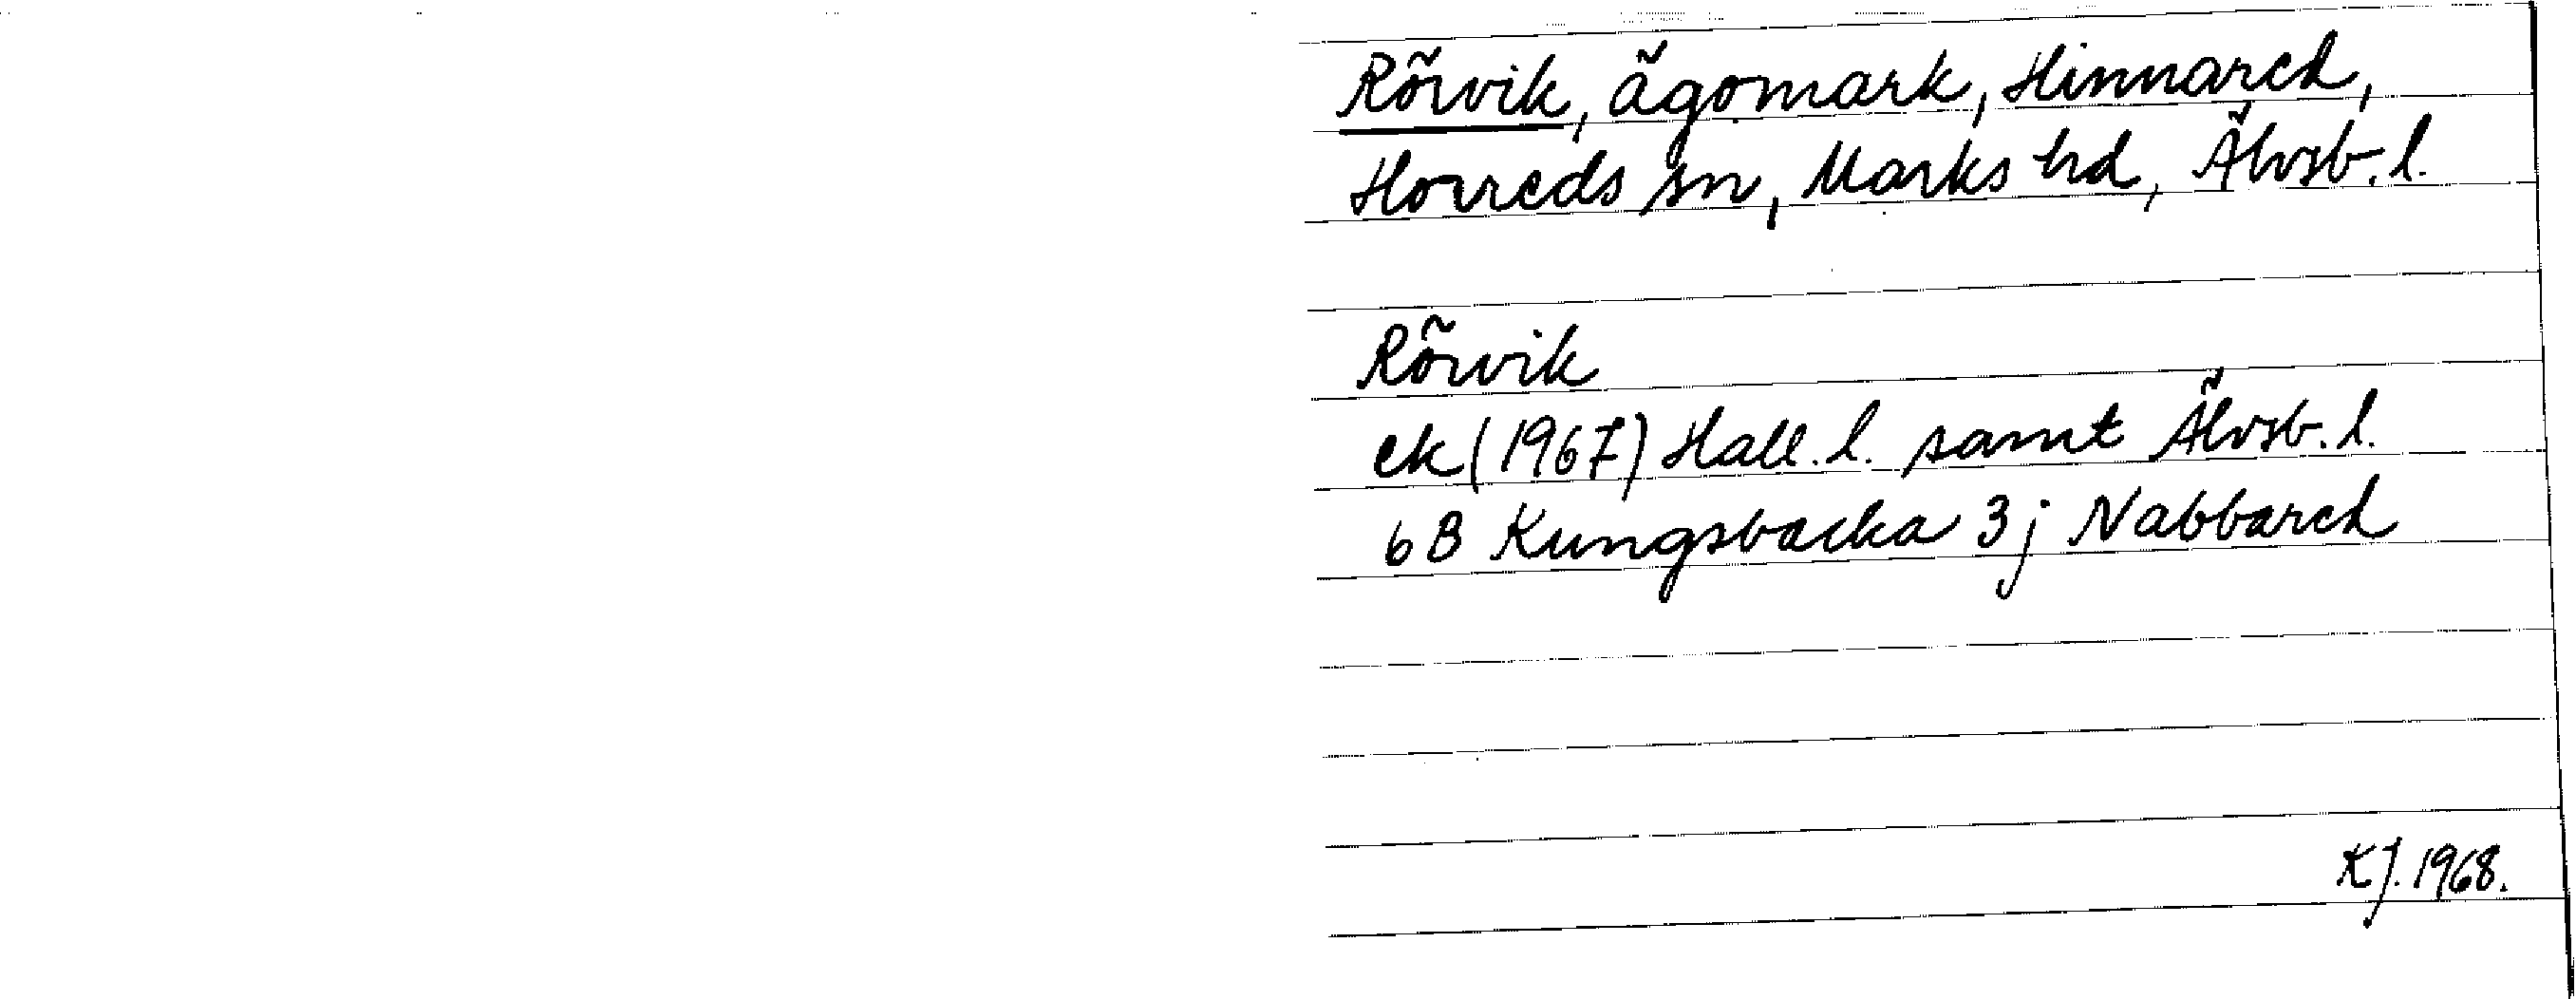 Rörvik, ägomark, Hinnared,
Horreds sn, Marks hd, Älvsb. l.
Rörvik
ek (1967) Hall. l. samt Älvsb. l.
6B Kungsbacka 3j Nabbared
KJ. 1968.